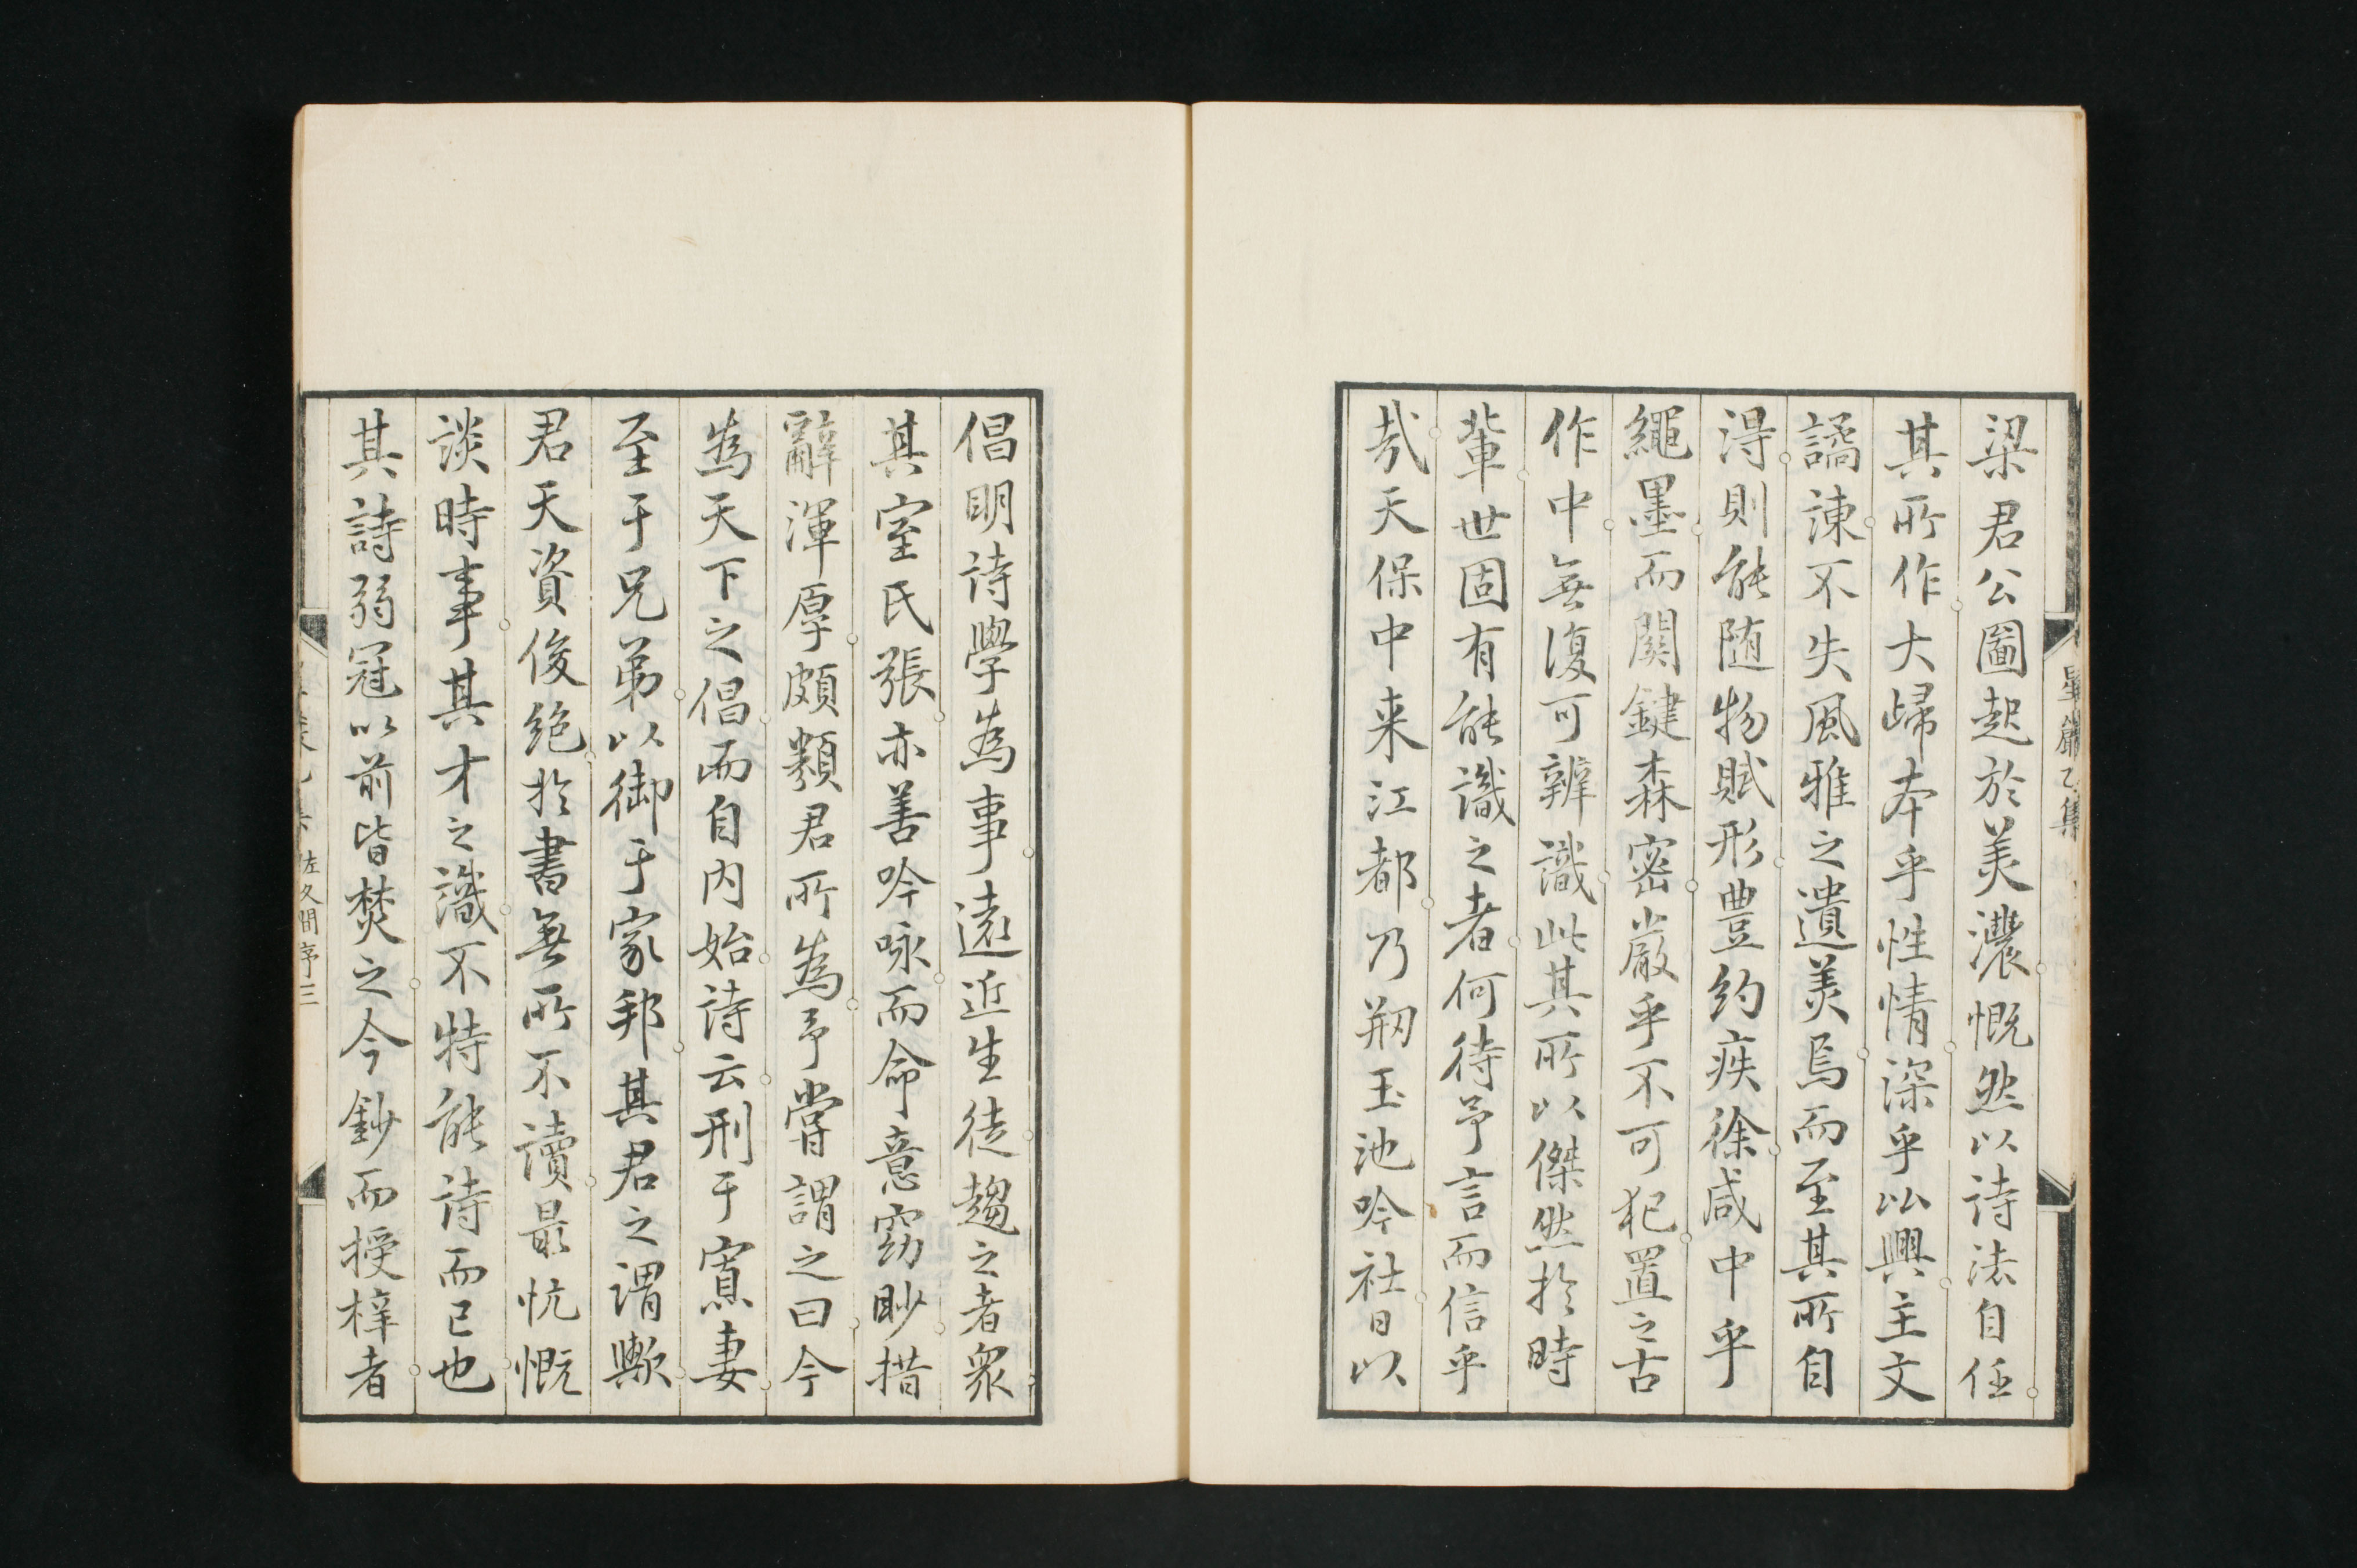 梁君公圖起於美濃慨然以詩法自任
其所作大歸本乎性情深乎比興主文
譎諫不失風雅之遺美焉而至其所自
得則能随物賦形豊約疾徐咸中乎
繩墨而關鍵森密嚴乎不可犯置之古
作中無復可辨識此其所以傑然於時
輩世固有能識之者何待予言而信乎
哉天保中来江都乃剏玉池吟社日以
星巌乙集
倡明詩學為事遠近生徒趨之者衆
其室氏張亦善吟咏而命意窈眇措
辭渾厚頗類君所為予嘗謂之曰今
為天下之倡而自内始詩云刑于寡妻
至于兄弟以御于家邦其君之謂歟
君天資俊絶於書無所不讀最忼慨
談時事其才之識不特能詩而已也
其詩弱冠以前皆焚之今鈔而授梓者
佐久間序三